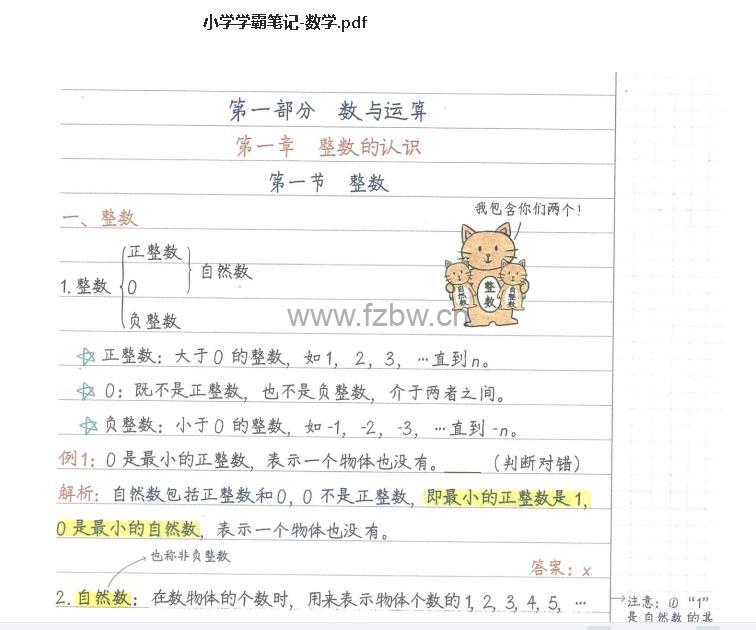 小学学霸笔记-数学.pdf
第一部分 数与运算
第一章 整数的认识
第一节 整数
一、整数
我包含你们两个！
正整数
1.整数 0 自然数
负整数
自然数 整数 负整数
www.fzbw.cn
☆ 正整数：大于 0 的整数，如 1，2，3，…直到 n。
☆ 0：既不是正整数，也不是负整数，介于两者之间。
☆ 负整数：小于 0 的整数，如 -1，-2，-3，…直到 -n。
例1：0 是最小的正整数，表示一个物体也没有。____（判断对错）
解析：自然数包括正整数和 0，0 不是正整数，即最小的正整数是 1，
0 是最小的自然数，表示一个物体也没有。
也称非负整数
答案：×
2.自然数：在数物体的个数时，用来表示物体个数的 1，2，3，4，5，…
注意：① “1”
是自然数的基